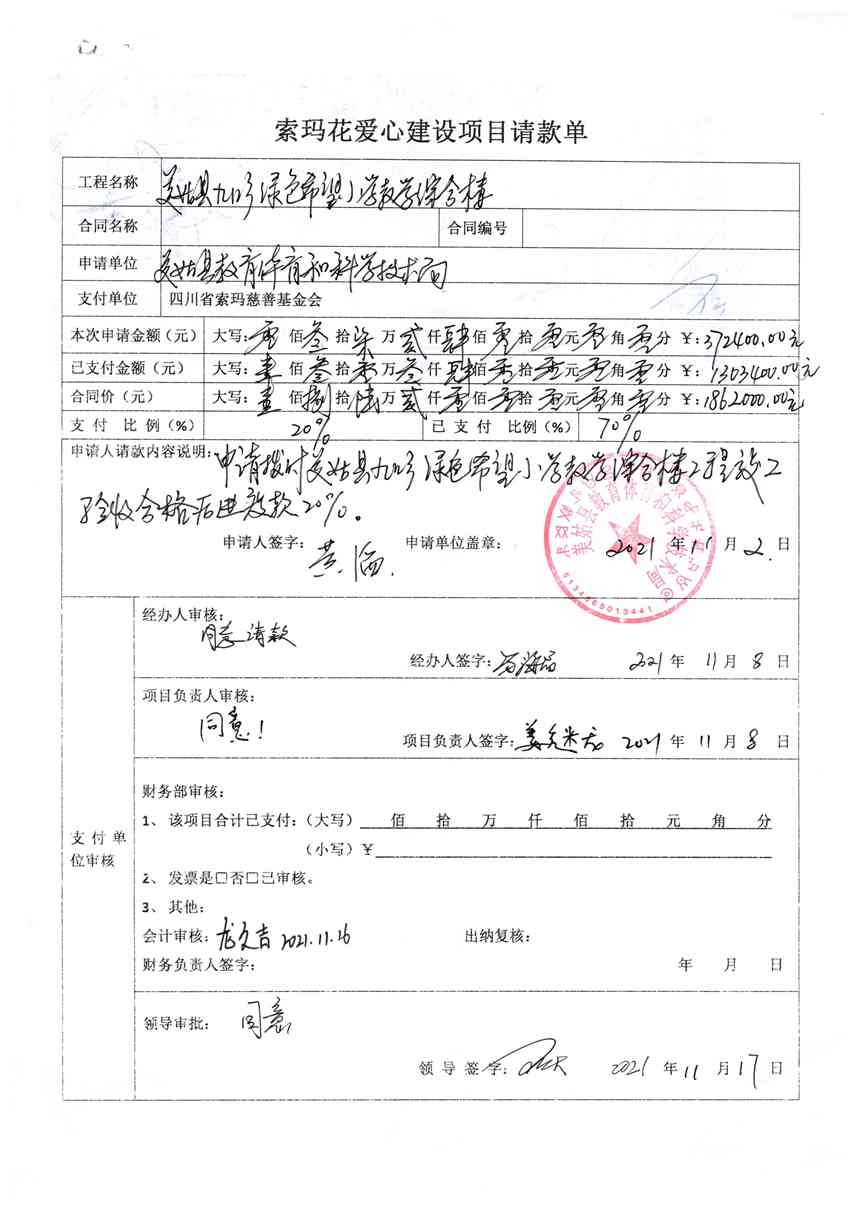 索玛花爱心建设项目请款单
工程名称 美姑县九口乡绿色希望小学教学综合楼
合同名称 合同编号
申请单位 美姑县教育体育和科学技术局
支付单位 四川省索玛慈善基金会
本次申请金额（元） 大写：零佰叁拾柒万贰仟肆佰零拾零元零角零分 ￥：372400.00元
已支付金额（元） 大写：壹佰叁拾零万叁仟肆佰零拾零元零角零分 ￥：1303400.00元
合同价（元） 大写：壹佰捌拾陆万贰仟零佰零拾零元零角零分 ￥：1862000.00元
支付 比例（%） 20% 已支付 比例（%） 70%
申请人请款内容说明：申请拨付美姑县九口乡绿色希望小学教学综合楼工程竣工
验收合格后进度款20%。
申请人签字： 黄 申请单位盖章： 2021年11月2日
美姑县教育体育和科学技术局
5134560013441
经办人审核：
同意请款
经办人签字： 2021年11月8日
项目负责人审核：
同意！
项目负责人签字： 2021年11月8日
支付单位审核
财务部审核：
1、 该项目合计已支付：（大写） 佰 拾 万 仟 佰 拾 元 角 分
（小写）￥
2、 发票是□否□已审核。
3、 其他：
会计审核： 2021.11.26 出纳复核：
财务负责人签字： 年 月 日
领导审批： 同意
领导签字： 2021年11月17日